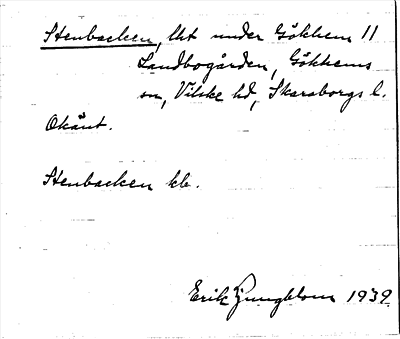 Stenbacken, lht under Gökhem 11
Landbogården, Gökhems
sn, Vilske hd, Skaraborgs l.
Okänt.
Stenbacken kb.
Erik Ljungblom 1939